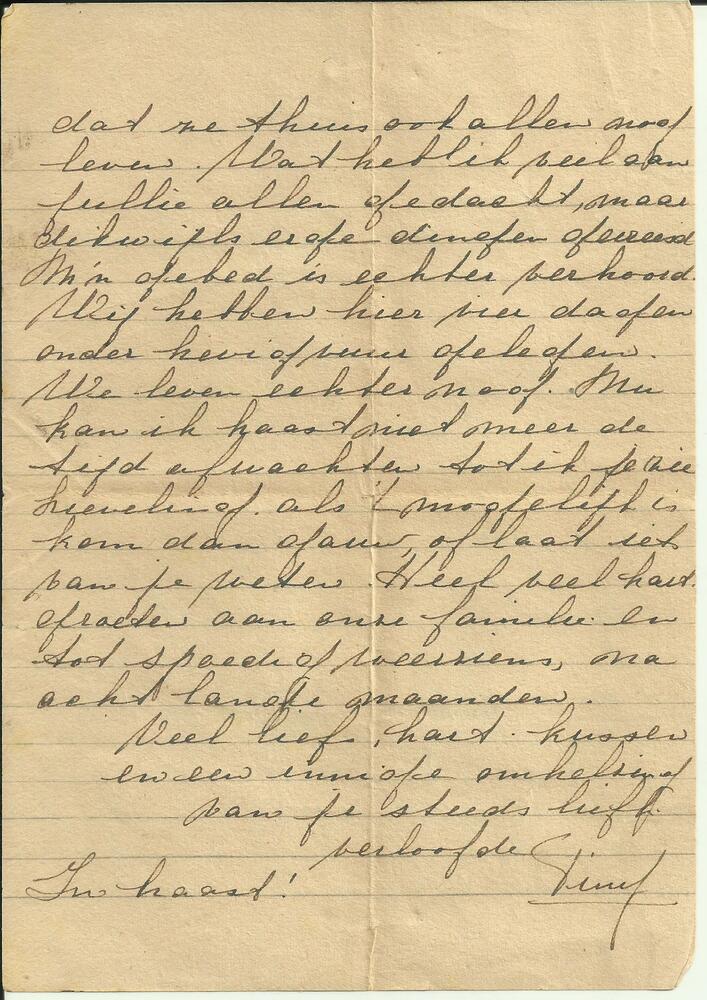 dat ze thuis ook allen nog
leven. Wat heb ik veel aan
jullie allen gedacht, maar
dikwijls erge dingen gevreesd
M'n gebed is echter verhoord.
Wij hebben hier vier dagen
onder hevig vuur gelegen.
We leven echter nog. Nu
kan ik haast niet meer de
tijd afwachten tot ik je zie
lieveling. als 't mogelijk is
kom dan gauw, of laat iets
van je weten. Heel veel hart.
groeten aan onze familie en
tot spoedig weerziens, na
acht lange maanden.
Veel liefs, hart. kussen
en een innige omhelzing
van je steeds liefh.
verloofde
In haast!